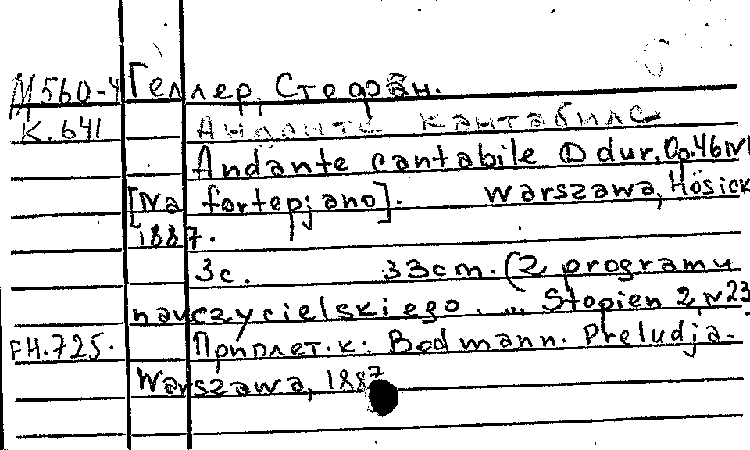 М560-4 Геллер, Стефан.
К.641 Анданте кантабиле
Andante cantabile D dur. Op.46 N1
[Na fortepjano]. Warszawa, Hösick
1887.
3с. 33cm. (Z programu
nauczycielskiego ... Stopien 2, N23
FH.725. Приплет. к: Bodmann. Preludja.
Warszawa, 1887